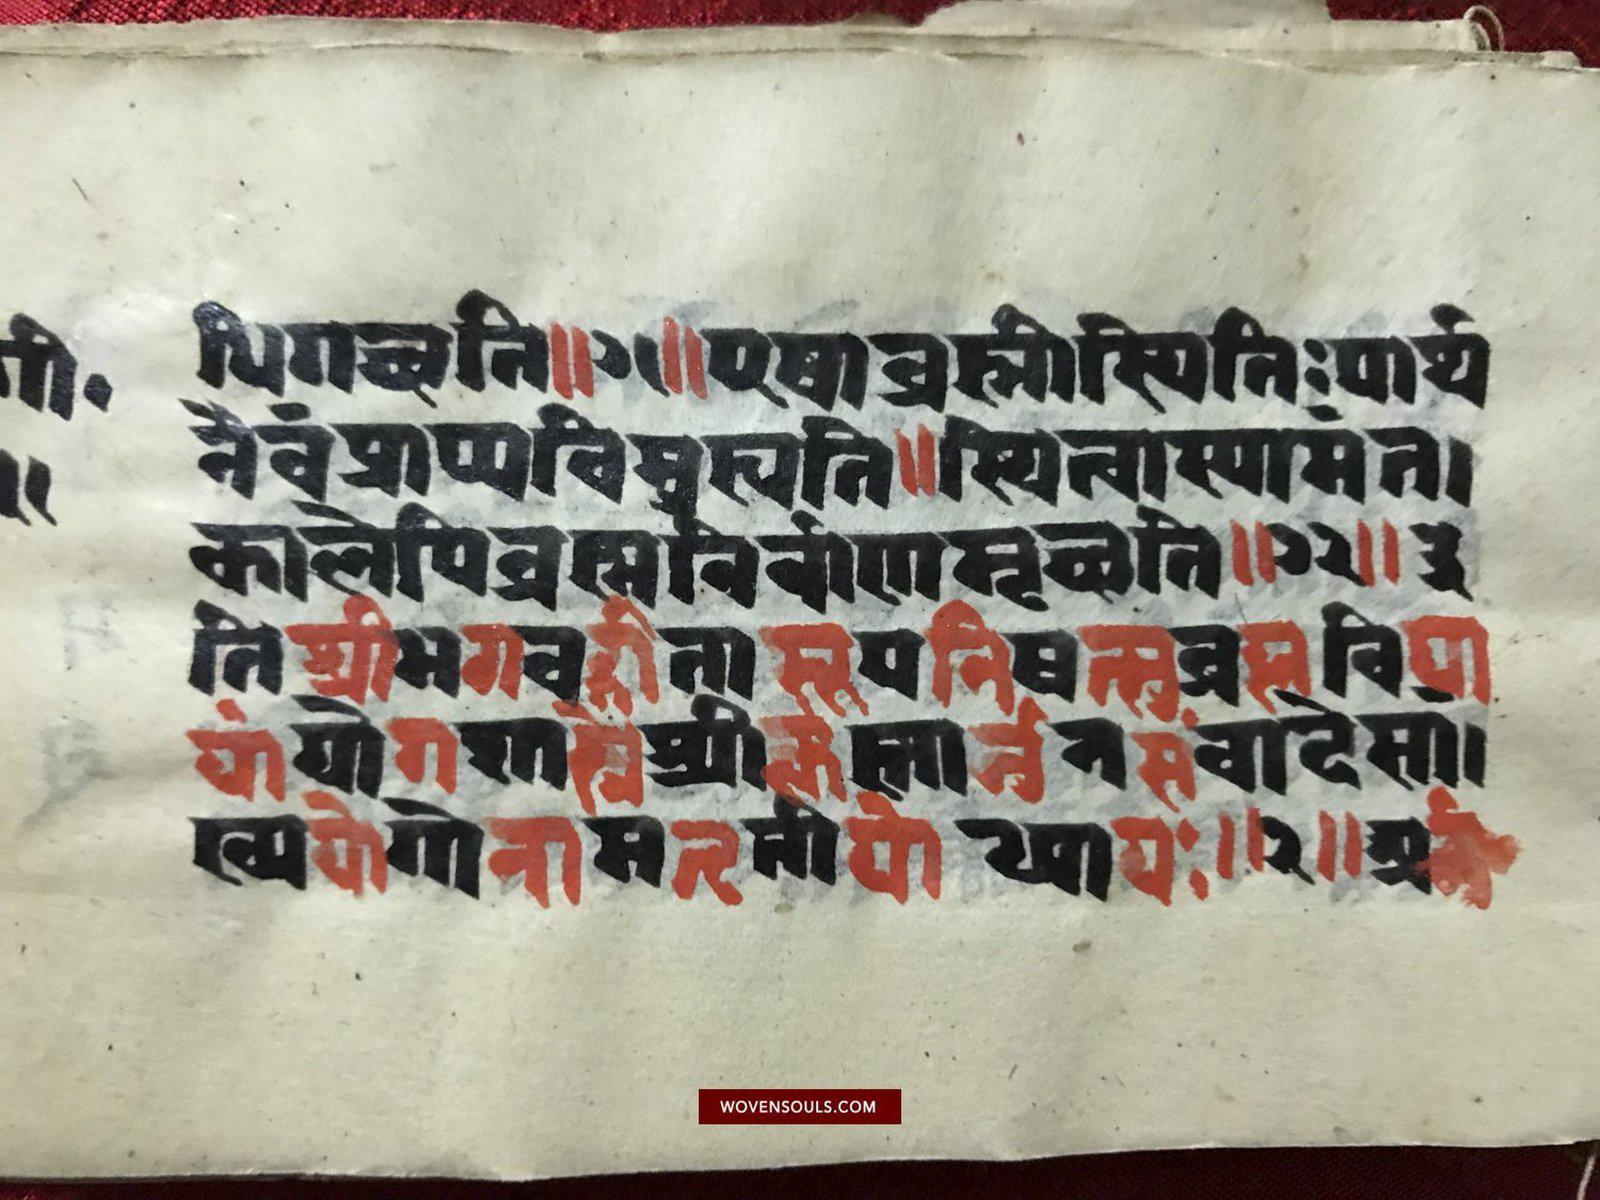 धिगच्छति॥७१॥एषाब्रह्मीस्थितिःपार्थ
नैवंप्राप्यविमुह्यति॥स्थित्वास्यामंत।
कालेपिब्रह्मनिर्वाणमृच्छति॥७२॥इ
ति श्रीभगवद्गीतासूपनिषत्सुब्रह्मविद्या
यांयोगशास्त्रेश्रीकृष्णार्जुनसंवादेसां।
ख्ययोगोनामद्वितीयोध्यायः॥२॥अर्जु
गी॰
WOVENSOULS.COM